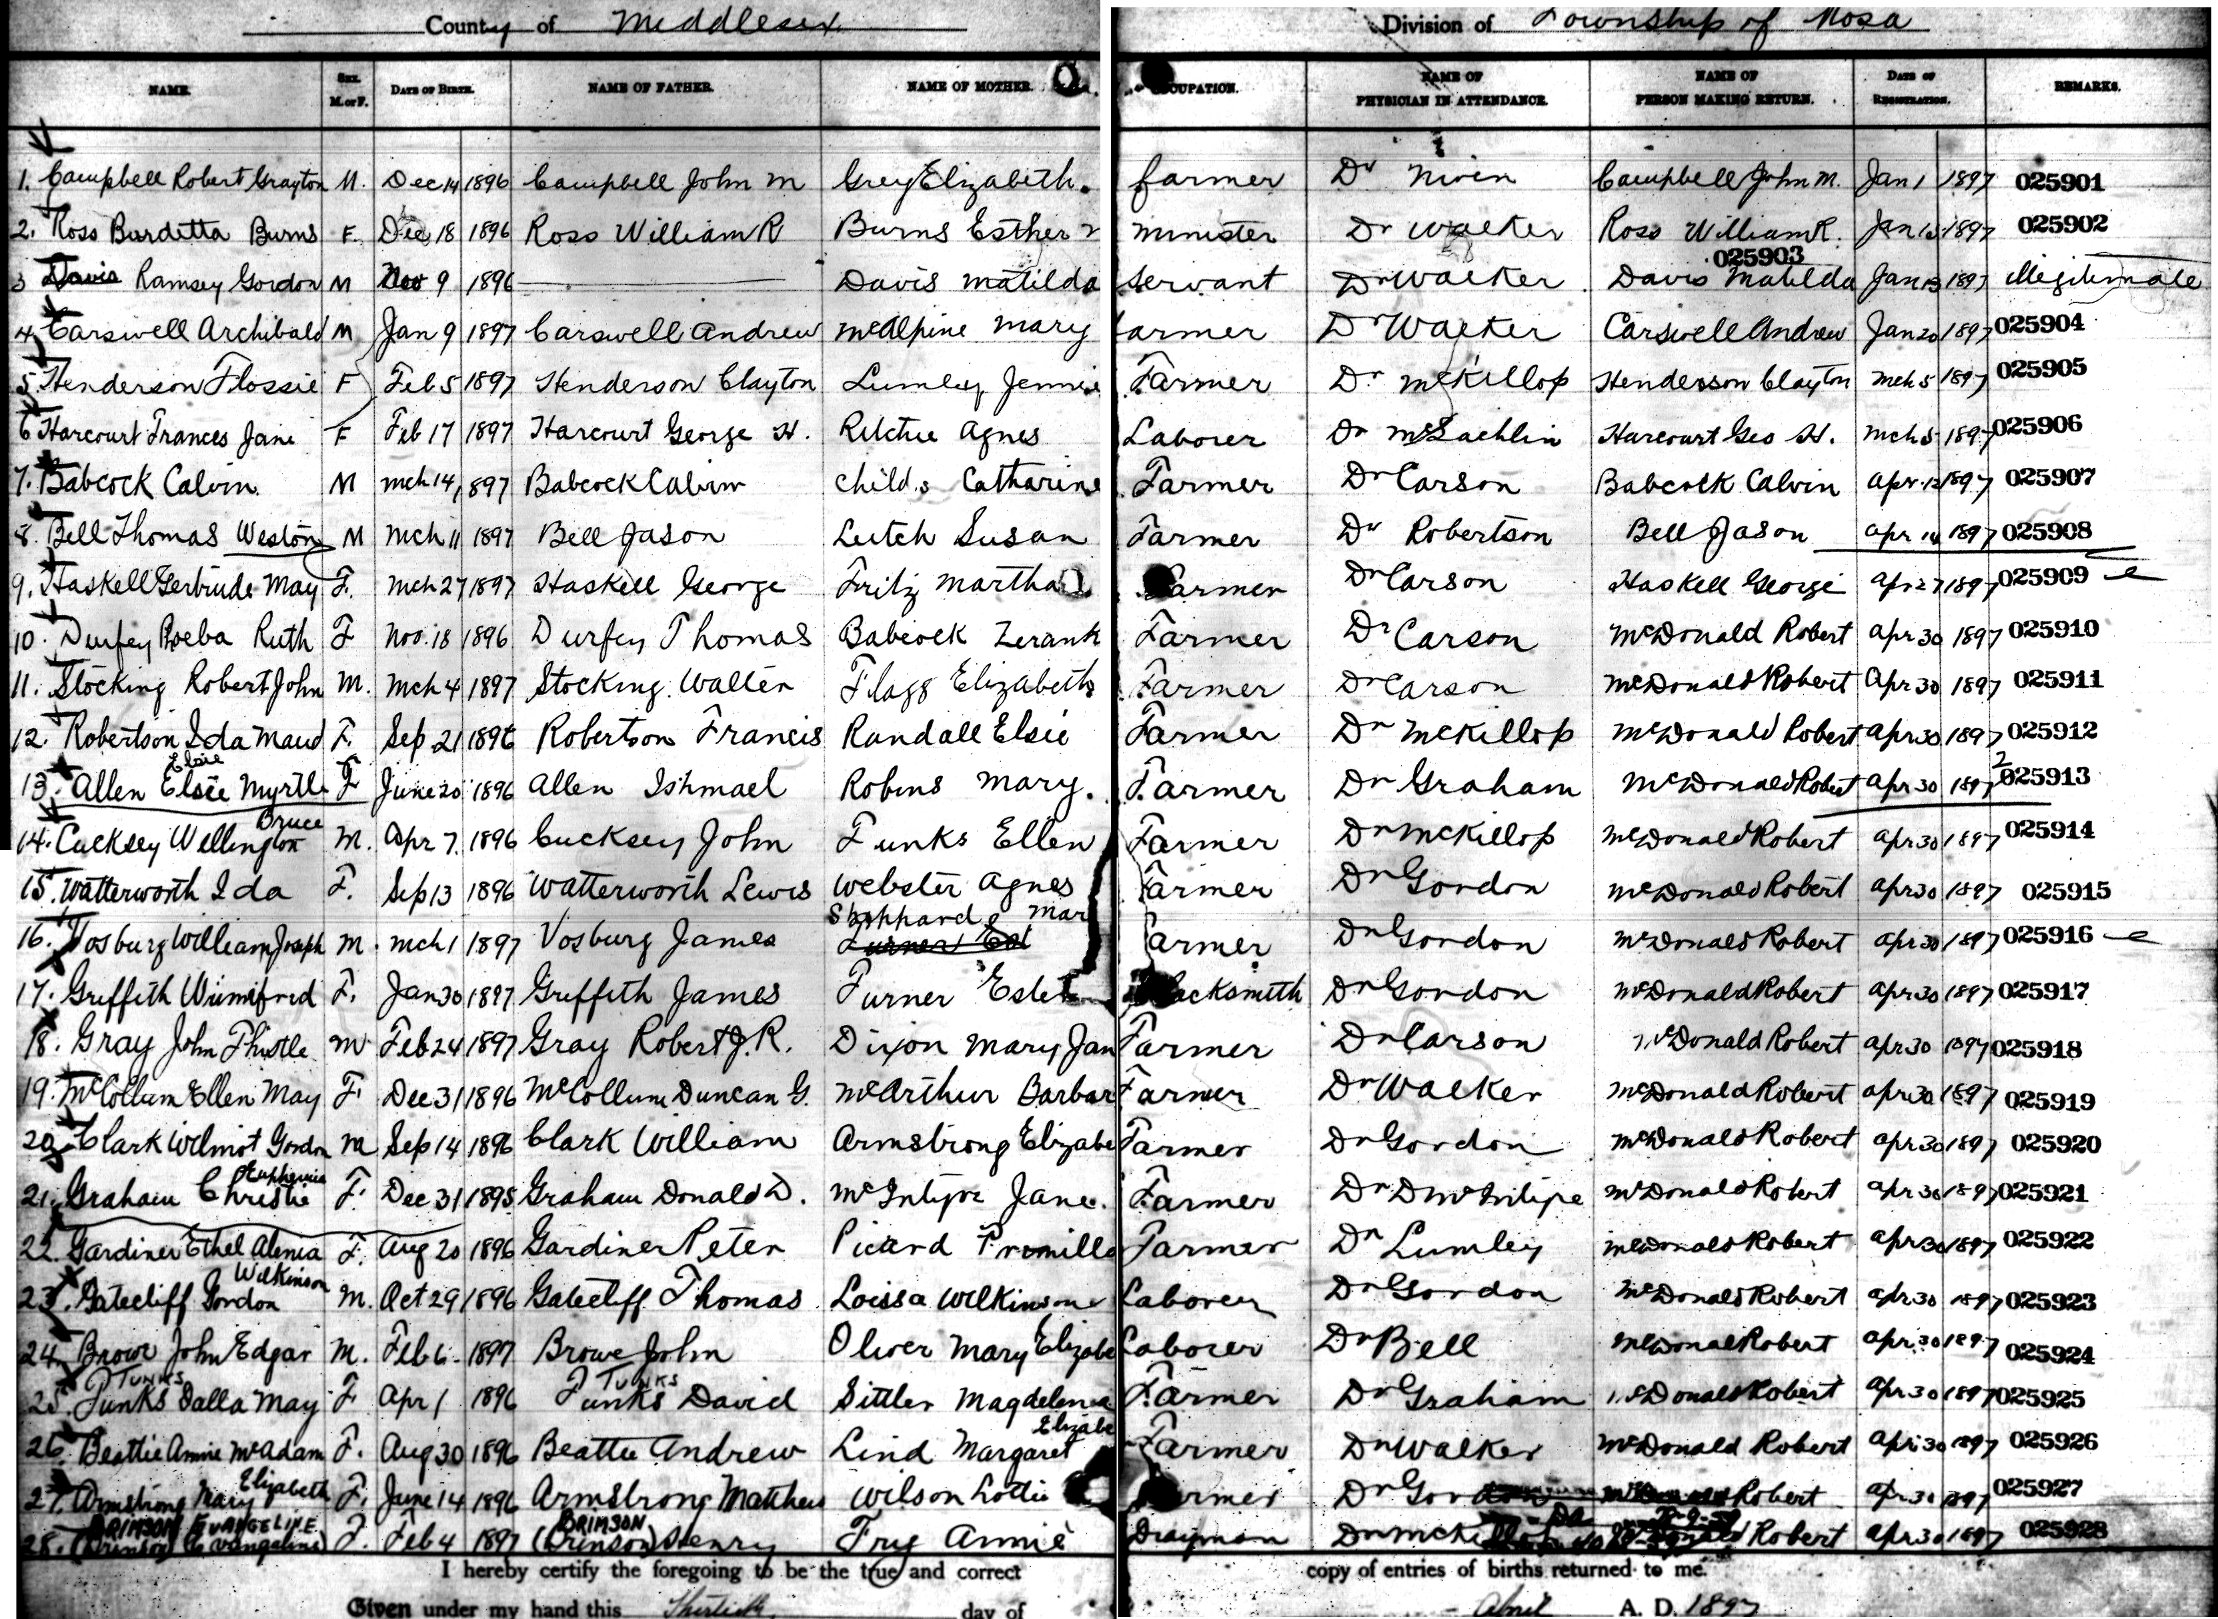 County of Middlesex. Division of Township of Mosa
NAME. SEX. M. or F. DATE OF BIRTH. NAME OF FATHER. NAME OF MOTHER. OCCUPATION. NAME OF PHYSICIAN IN ATTENDANCE. NAME OF PERSON MAKING RETURN. DATE OF REGISTRATION. REMARKS.
1. Campbell Robert Grayton M. Dec 14 1896 Campbell John M Grey Elizabeth. farmer Dr Niven Campbell John M. Jan 1 1897 025901
2. Ross Burditta Burns F. Dec 18 1896 Ross William R Burns Esther minister Dr Walker Ross William R. Jan 1897 025902
3 Davis Ramsey Gordon M Nov 9 1896 Davis Matilda servant Dr Walker Davis Matilda Jan 13 1897 025903 illegitimate
4 Carswell Archibald M Jan 9 1897 Carswell Andrew McAlpine Mary farmer Dr Walker Carswell Andrew Jan 20 1897 025904
5 Henderson Flossie F Feb 5 1897 Henderson Clayton Lumley Jennie Farmer Dr McKillop Henderson Clayton Mch 5 1897 025905
6 Harcourt Frances Jane F Feb 17 1897 Harcourt George H. Ritchie Agnes Laborer Dr McLachlin Harcourt Geo H. Mch 5 1897 025906
7. Babcock Calvin M Mch 14 1897 Babcock Calvin Childs Catharine Farmer Dr Carson Babcock Calvin Apr 12 1897 025907
8. Bell Thomas Weston M Mch 11 1897 Bell Jason Leitch Susan Farmer Dr Robertson Bell Jason Apr 14 1897 025908
9. Haskell Gertrude May F. Mch 27 1897 Haskell George Fritz Martha Farmer Dr Carson Haskell George Apr 27 1897 025909
10. Durfey Phoeba Ruth F Nov. 18 1896 Durfey Thomas Babcock Zerank Farmer Dr Carson McDonald Robert Apr 30 1897 025910
11. Stocking Robert John M. Mch 4 1897 Stocking Walter Flagg Elizabeth Farmer Dr Carson McDonald Robert Apr 30 1897 025911
12. Robertson Ida Maud F. Sep 21 1896 Robertson Francis Randall Elsie Farmer Dr McKillop McDonald Robert Apr 30 1897 025912
Elsie
13. Allen Elsie Myrtle F June 20 1896 Allen Ishmael Robins Mary. Farmer Dr Graham McDonald Robert Apr 30 1897 025913
Bruce
14. Cucksey Wellington M. Apr 7. 1896 Cucksey John Funks Ellen Farmer Dr McKillop McDonald Robert Apr 30 1897 025914
15. Watterworth Ida F. Sep 13 1896 Watterworth Lewis Webster Agnes Farmer Dr Gordon McDonald Robert Apr 30 1897 025915
Shappard Mar
16. Vosburg William Joseph M. Mch 1 1897 Vosburg James Turner Farmer Dr Gordon McDonald Robert Apr 30 1897 025916
17. Griffith Winnifred F. Jan 30 1897 Griffith James Turner Ester Blacksmith Dr Gordon McDonald Robert Apr 30 1897 025917
18. Gray John Thistle M Feb 24 1897 Gray Robert J. R. Dixon Mary Jan Farmer Dr Carson McDonald Robert Apr 30 1897 025918
19. McCollum Ellen May F. Dec 31 1896 McCollum Duncan G. McArthur Barbar Farmer Dr Walker McDonald Robert Apr 30 1897 025919
20. Clark Wilmot Gordon M Sep 14 1896 Clark William Armstrong Elizabe Farmer Dr Gordon McDonald Robert Apr 30 1897 025920
Euphemia
21. Graham Christie F. Dec 31 1895 Graham Donald D. McIntyre Jane. Farmer Dr D McIntyre McDonald Robert Apr 30 1897 025921
22. Gardiner Ethel Alenia F. Aug 20 1896 Gardiner Peter Picard Promilla Farmer Dr Lumley McDonald Robert Apr 30 1897 025922
Wilkinson
23. Gatecliff Gordon M. Oct 29 1896 Gatecliff Thomas Loissa Wilkinson Laborer Dr Gordon McDonald Robert Apr 30 1897 025923
24. Browe John Edgar M. Feb 6 1897 Browe John Oliver Mary Elizabe Laborer Dr Bell McDonald Robert Apr 30 1897 025924
TUNKS TUNKS
25. Tunks Dalla May F Apr 1 1896 Tunks David Sittler Magdelena Farmer Dr Graham McDonald Robert Apr 30 1897 025925
Elizabe
26. Beattie Annie McAdam F. Aug 30 1896 Beattie Andrew Lind Margaret Farmer Dr Walker McDonald Robert Apr 30 1897 025926
Elizabeth
27. Armstrong Mary F. June 14 1896 Armstrong Matthew Wilson Lottie Farmer Dr Gordon McDonald Robert Apr 30 1897 025927
BRIMSON EVANGELINE BRIMSON
28. (Brinson) Evangaline F. Feb 4 1897 (Brinson) Henry Fry Annie Drayman Dr McKillop Robert Apr 30 1897 025928
I hereby certify the foregoing to be the true and correct copy of entries of births returned to me.
Given under my hand this Thirtieth day of April A. D. 1897